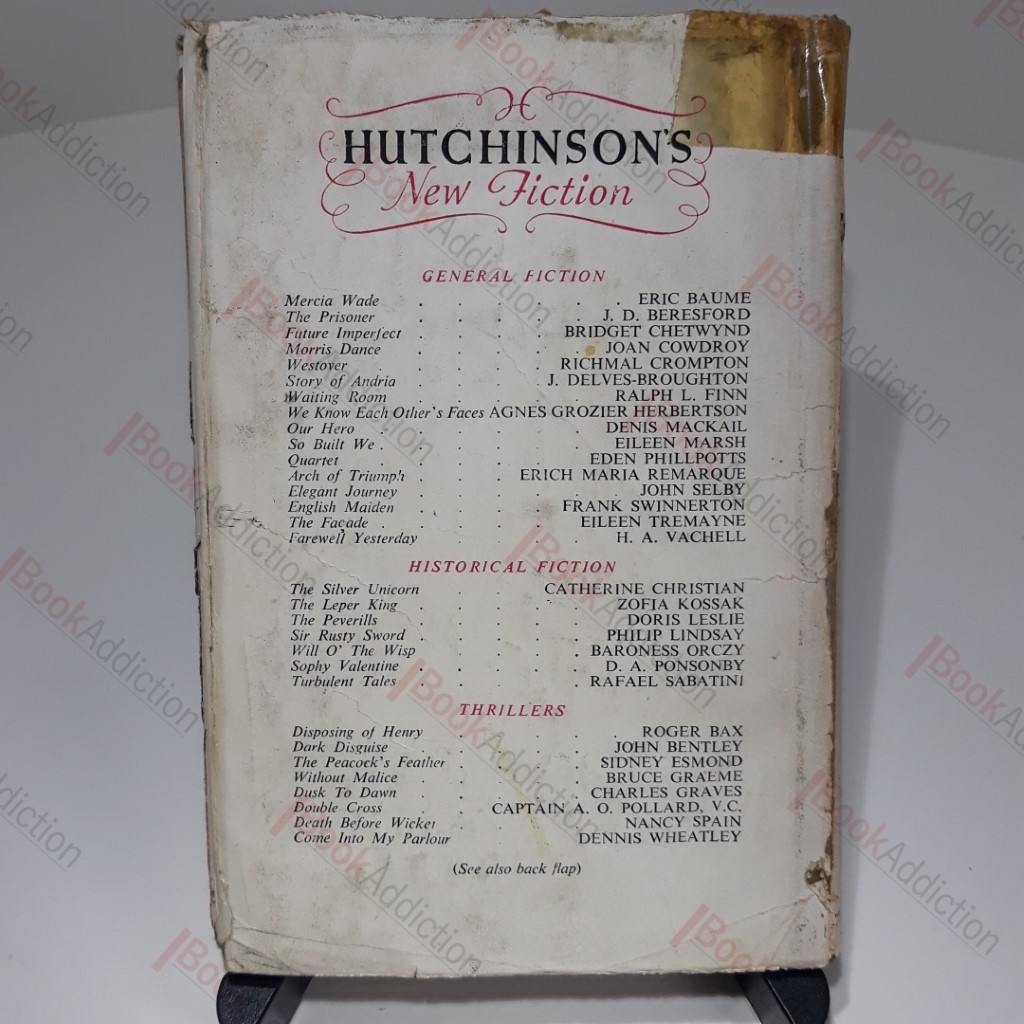 H
HUTCHINSON'S
New Fiction
GENERAL FICTION
Mercia Wade . . . . . . ERIC BAUME
The Prisoner . . . . . J. D. BERESFORD
Future Imperfect . . . . BRIDGET CHETWYND
Morris Dance . . . . . JOAN COWDROY
Westover . . . . RICHMAL CROMPTON
Story of Andria . . . . J. DELVES-BROUGHTON
Waiting Room . . . . . RALPH L. FINN
We Know Each Other's Faces AGNES GROZIER HERBERTSON
Our Hero . . . . . DENIS MACKAIL
So Built We . . . . . EILEEN MARSH
Quartet . . . . . EDEN PHILLPOTTS
Arch of Triumph . . . ERICH MARIA REMARQUE
Elegant Journey . . . . . JOHN SELBY
English Maiden . . . . FRANK SWINNERTON
The Façade . . . . . EILEEN TREMAYNE
Farewell Yesterday . . . . H. A. VACHELL
HISTORICAL FICTION
The Silver Unicorn . . CATHERINE CHRISTIAN
The Leper King . . . . ZOFIA KOSSAK
The Peverills . . . . DORIS LESLIE
Sir Rusty Sword . . . . . PHILIP LINDSAY
Will O' The Wisp . . . . BARONESS ORCZY
Sophy Valentine . . . . . D. A. PONSONBY
Turbulent Tales . . . . . RAFAEL SABATINI
THRILLERS
Disposing of Henry . . . . . ROGER BAX
Dark Disguise . . . . . JOHN BENTLEY
The Peacock's Feather . . . . SIDNEY ESMOND
Without Malice . . . . . BRUCE GRAEME
Dusk To Dawn . . . . . CHARLES GRAVES
Double Cross . . CAPTAIN A. O. POLLARD, V.C.
Death Before Wicket . . . . NANCY SPAIN
Come Into My Parlour . . . DENNIS WHEATLEY
(See also back flap)
BookAddiction